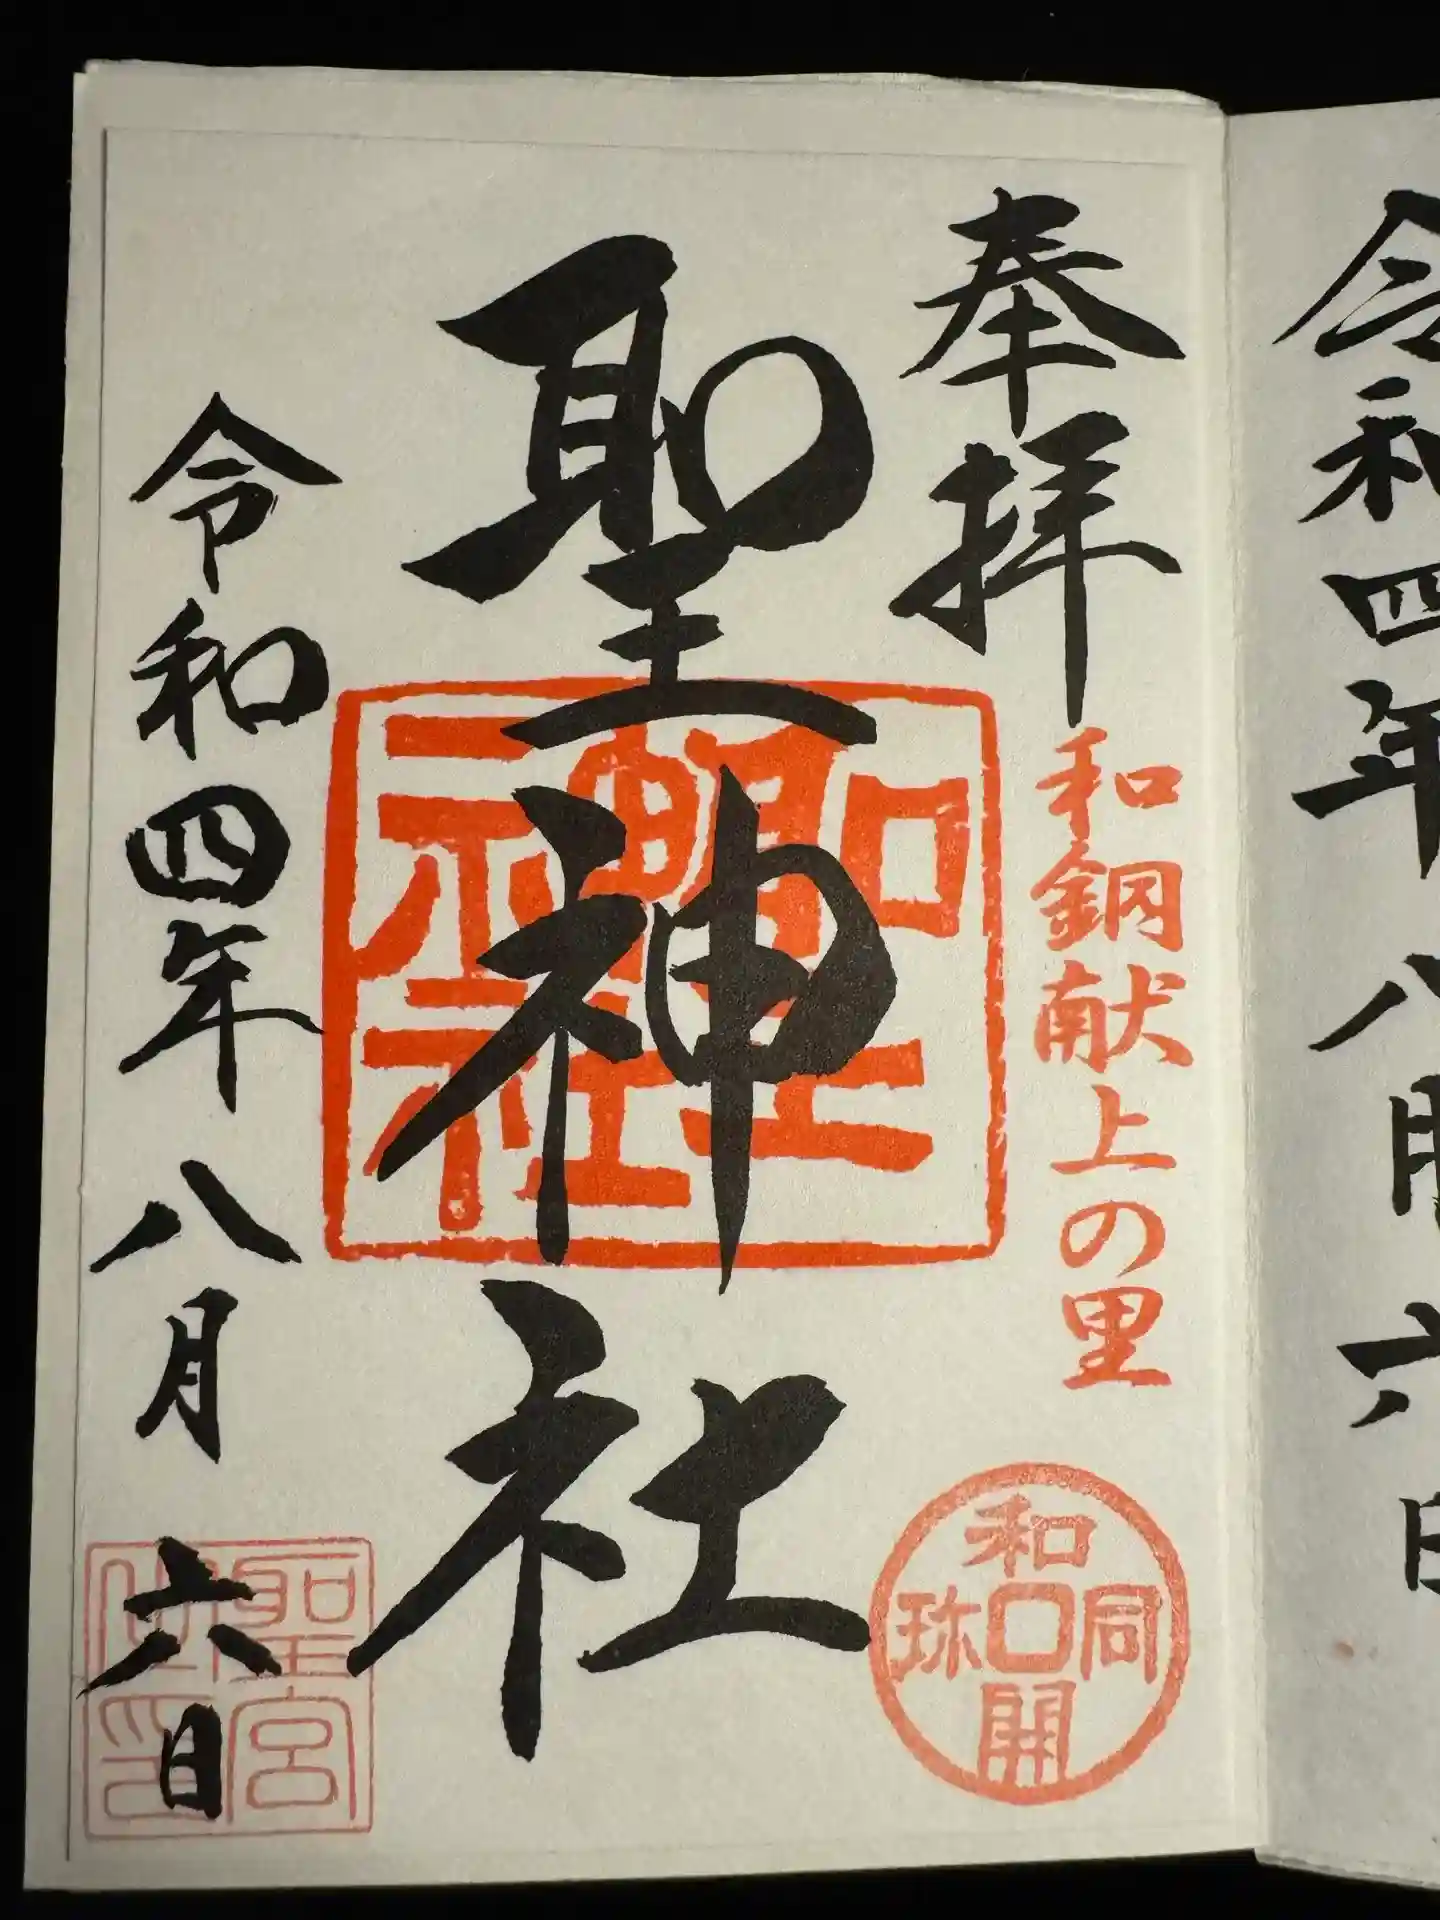 奉拝
和銅献上の里
和同開珎
聖神社
聖神社
令和四年八月六日
聖宮
令和四年八月六日